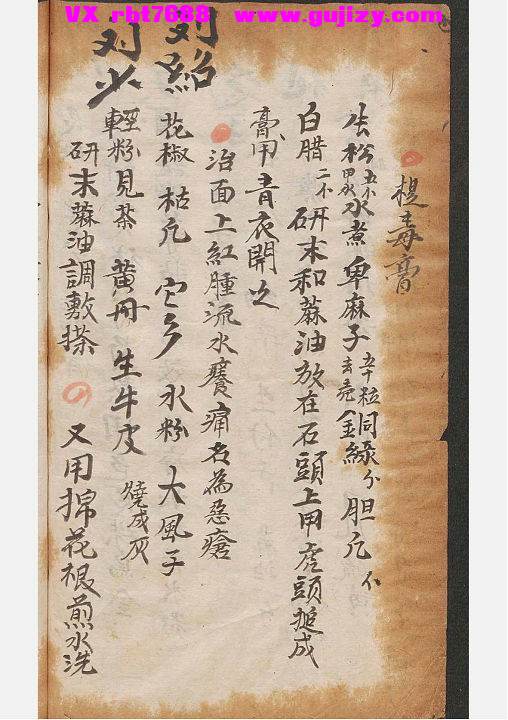 VX rbt7888 www.gujizy.com
提毒膏
生松 水煮 卑麻子五十粒去壳 銅綠分 胆凡
白腊 研末和蔴油放在石頭上用 頭搥成
膏用青衣開之
治面上紅腫流水癢痛名為惡瘡
花椒 枯凡 水粉 大風子
輕粉 見茶 黃丹 生牛皮燒成灰
研末蔴油調敷搽 又用棉花根煎水洗